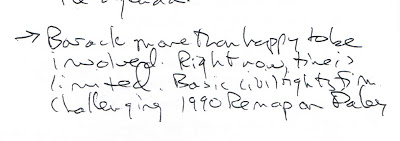 the agenda.
→ Barack more than happy to be
involved. Right now, time is
limited. Basic civil rights firm
challenging 1990 Remap on Daley